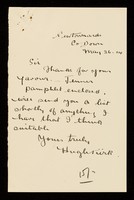 Newtownards
Co. Down
May 26
Sir
Thanks for your
favour. Tennis
pamphlet enclosed.
will send you a list
shortly of anything I
have that I think
suitable
Yours truly,
Hugh